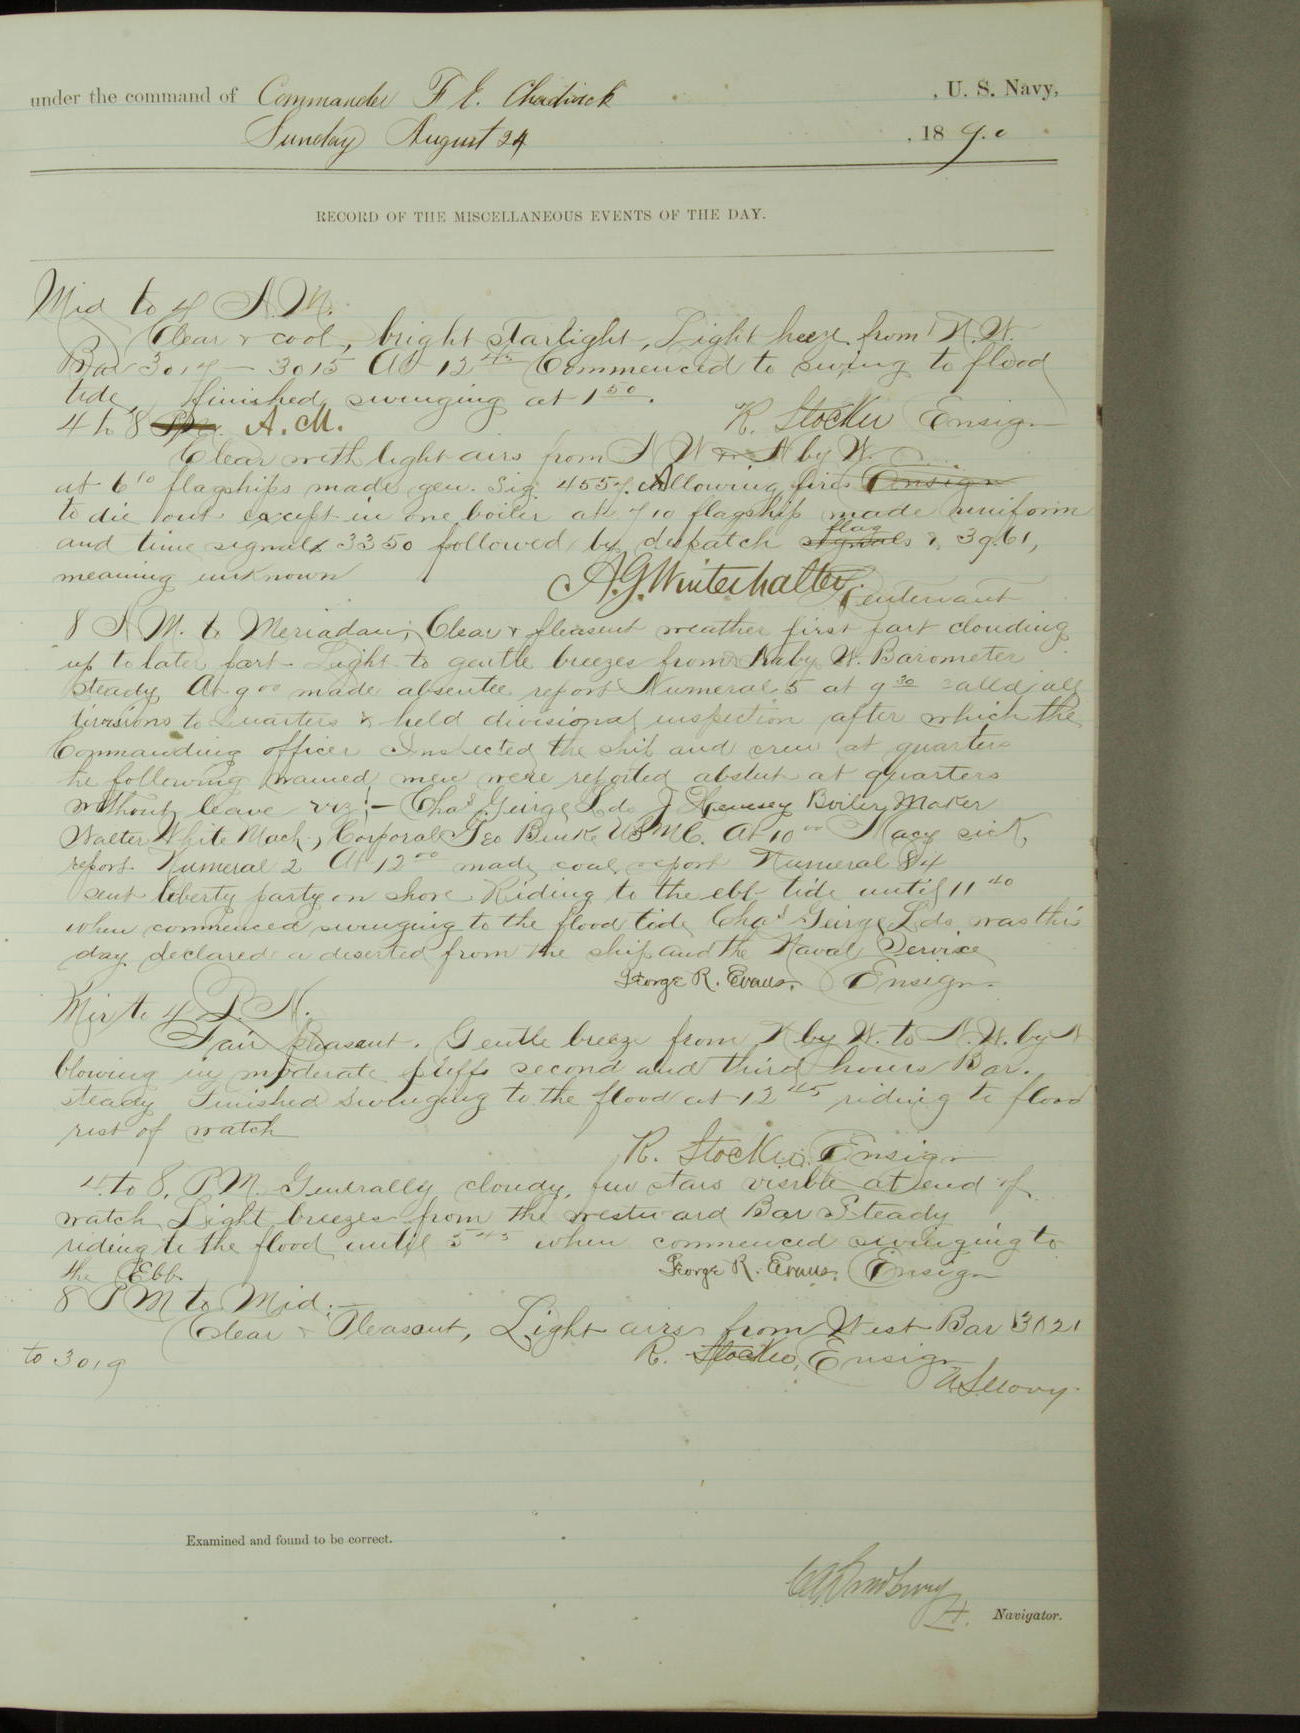 under the command of Commander F E. Chadwick , U. S. Navy,
Sunday August 24 , 1890
RECORD OF THE MISCELLANEOUS EVENTS OF THE DAY.
Mid to 4 A. M.
Clear & cool, bright starlight, Light breeze from N. W.
Bar 3017 — 3015 At 12 45 Commenced to swing to flood
tide, finished swinging at 1 50.
4 to 8 A. M. R. Stocker Ensign
Clear with light airs from N W to N by W.
at 6 10 flagships made gen. Sig. 4557. allowing fires Ensign
to die out except in one boiler at 7 10 flagship made uniform
and time signals 3350 followed by despatch flag signals 3961,
meaning unknown
A. G. Winterhalter Lieutenant
8 A M. to Meriadan; Clear & pleasent weather first part clouding
up to later part - Light to gentle breezes from N by W. Barometer
Steady At 9 00 made absentee report Numeral 5 at 9 30 called all
divisions to Quarters & held divisional inspection after which the
Commanding officer Inspected the ship and crew at quarters
the following named men were reported absent at quarters
without leave viz;— Chas George Lds J Hennesy Boiler Maker
Walter White Mach, Corporal Geo Burke USMC. At 10 00 Made sick
report Numeral 2 At 12 00 made coal report Numeral 84
sent liberty party on shore Riding to the ebb tide until 11 40
when commenced swinging to the flood tide Chas George Lds was this
day declared a deserted from the ship and the Naval Service
George R. Evans. Ensign
Mer to 4 P. M.
Fair pleasent. Gentle breeze from N by W. to N. W. by N
blowing in moderate puffs second and third hours Bar.
steady Finished swinging to the flood at 12 45 riding to flood
rest of watch
R. Stocker Ensign
4 to 8, P M. Generally cloudy, few stars visible at end of
watch Light breezes from the westward Bar Steady
riding to the flood until 5 45 when commenced swinging to
the Ebb. George R. Evans. Ensign
8 P M to Mid:—
Clear & Pleasant, Light airs from West Bar 3021
to 3019 R. Stocker, Ensign
Examined and found to be correct.
Navigator.